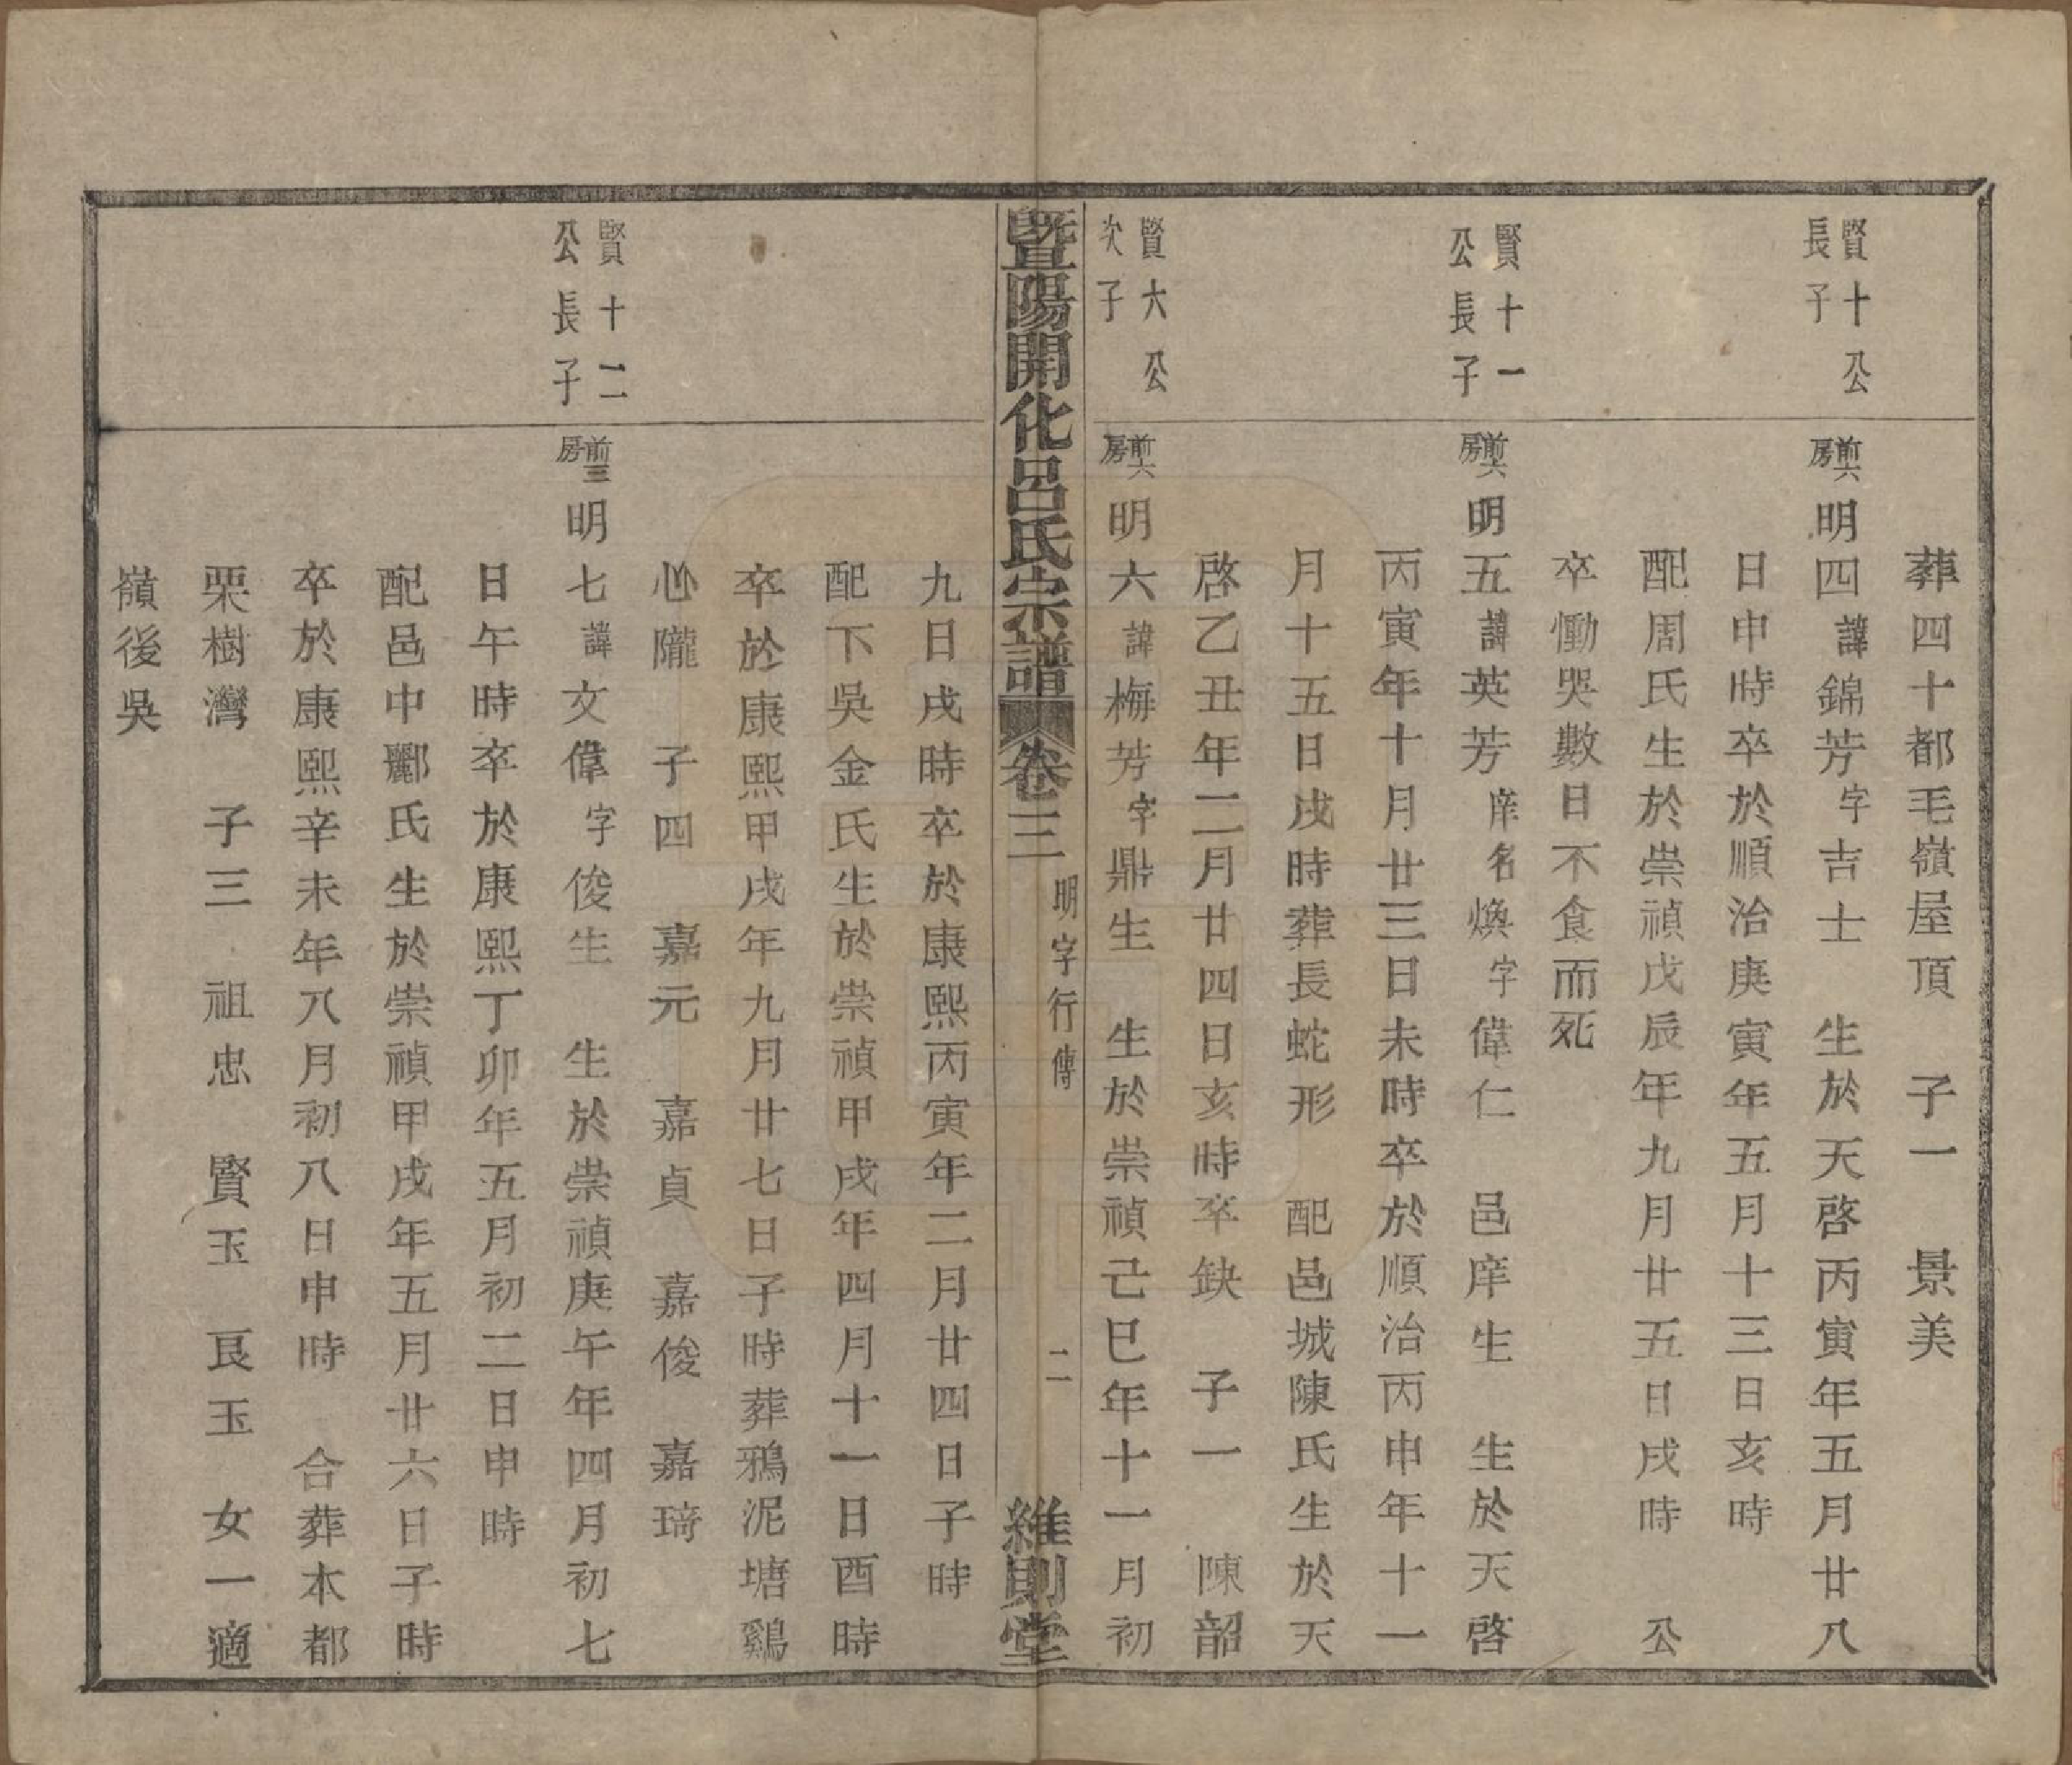 葬四十都毛嶺屋頂　子一　景美
賢十公
長子
前六房明四諱錦芳字吉士　生於天啓丙寅年五月廿八
日申時卒於順治庚寅年五月十三日亥時
配周氏生於崇禎戊辰年九月廿五日戌時　公
卒慟哭數日不食而死
賢十一
公長子
前六房明五諱英芳庠名煥字偉仁　邑庠生　生於天啓
丙寅年十月廿三日未時卒於順治丙申年十一
月十五日戌時葬長蛇形　配邑城陳氏生於天
啓乙丑年二月廿四日亥時卒缺　子一　陳韶
賢六公
次子
前六房明六諱梅芳字鼎生　生於崇禎己巳年十一月初
暨陽開化呂氏宗譜　卷三　明字行傳　二　維則堂
九日戌時卒於康熙丙寅年二月廿四日子時
配下吳金氏生於崇禎甲戌年四月十一日酉時
卒於康熙甲戌年九月廿七日子時葬鴉泥塘鷄
心隴　子四　嘉元　嘉貞　嘉俊　嘉琦
賢十二
公長子
前三房明七諱文偉字俊生　生於崇禎庚午年四月初七
日午時卒於康熙丁卯年五月初二日申時
配邑中酈氏生於崇禎甲戌年五月廿六日子時
卒於康熙辛未年八月初八日申時　合葬本都
栗樹灣　子三　祖忠　賢玉　艮玉　女一適
嶺後吳